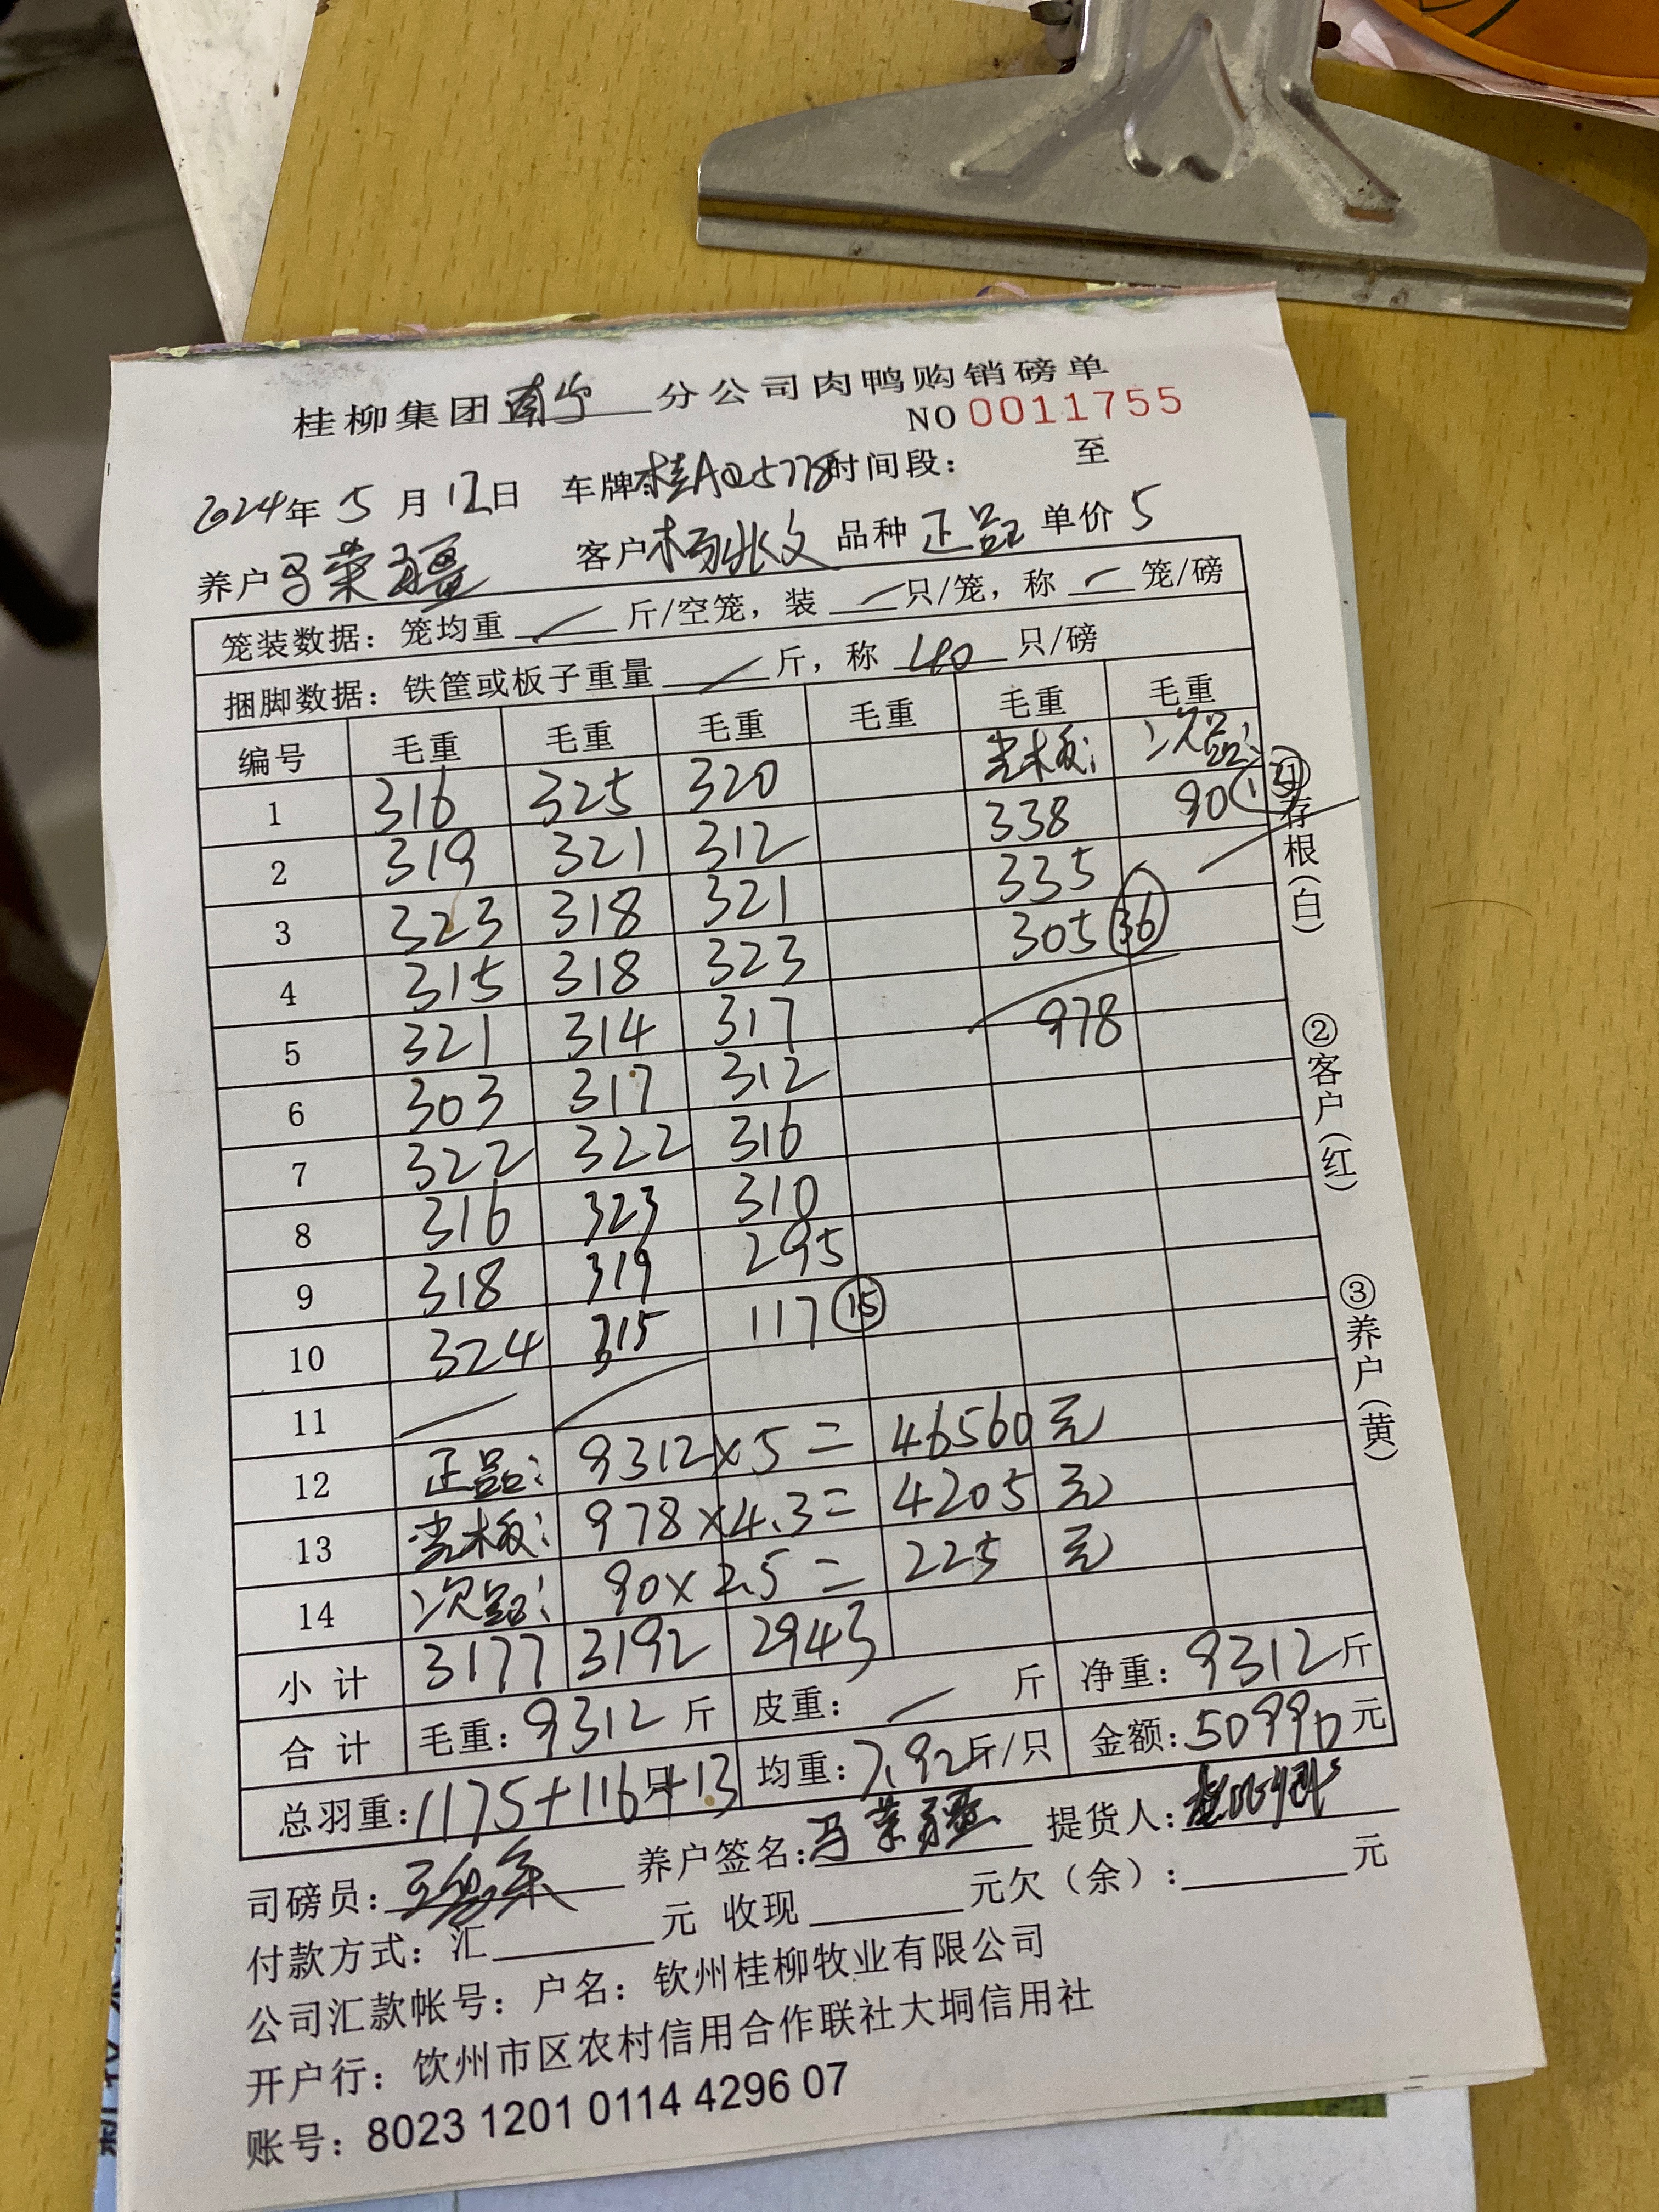 桂柳集团南宁分公司肉鸭购销磅单
NO 0011755
2024年 5 月 12日 车牌:桂AQ5778 时间段: 至
养户 冯荣疆 客户 杨兆文 品种 正品 单价 5
笼装数据: 笼均重 斤/空笼, 装 只/笼, 称 笼/磅
捆脚数据: 铁筐或板子重量 斤, 称 40 只/磅
编号 毛重 毛重 毛重 毛重 毛重 毛重
光板: 次品:
1 316 325 320 338 90 (13)
2 319 321 312 335
3 323 318 321 305 (36)
4 315 318 323
5 321 314 317 978
6 303 317 312
7 322 322 316
8 316 323 310
9 318 319 295
10 324 315 117 (15)
11
12 正品: 9312×5= 46560 元
13 光板: 978×4.3= 4205 元
14 次品: 90×2.5= 225 元
小计 3177 3192 2943
合计 毛重: 9312 斤 皮重: 斤 净重: 9312斤
总羽重: 1175+116只+13 均重: 7.92斤/只 金额: 50990元
司磅员: 养户签名: 冯荣疆 提货人:
付款方式: 汇 元 收现 元欠(余): 元
公司汇款帐号: 户名: 钦州桂柳牧业有限公司
开户行: 钦州市区农村信用合作联社大垌信用社
账号: 8023 1201 0114 4296 07
①存根(白)
②客户(红)
③养户(黄)